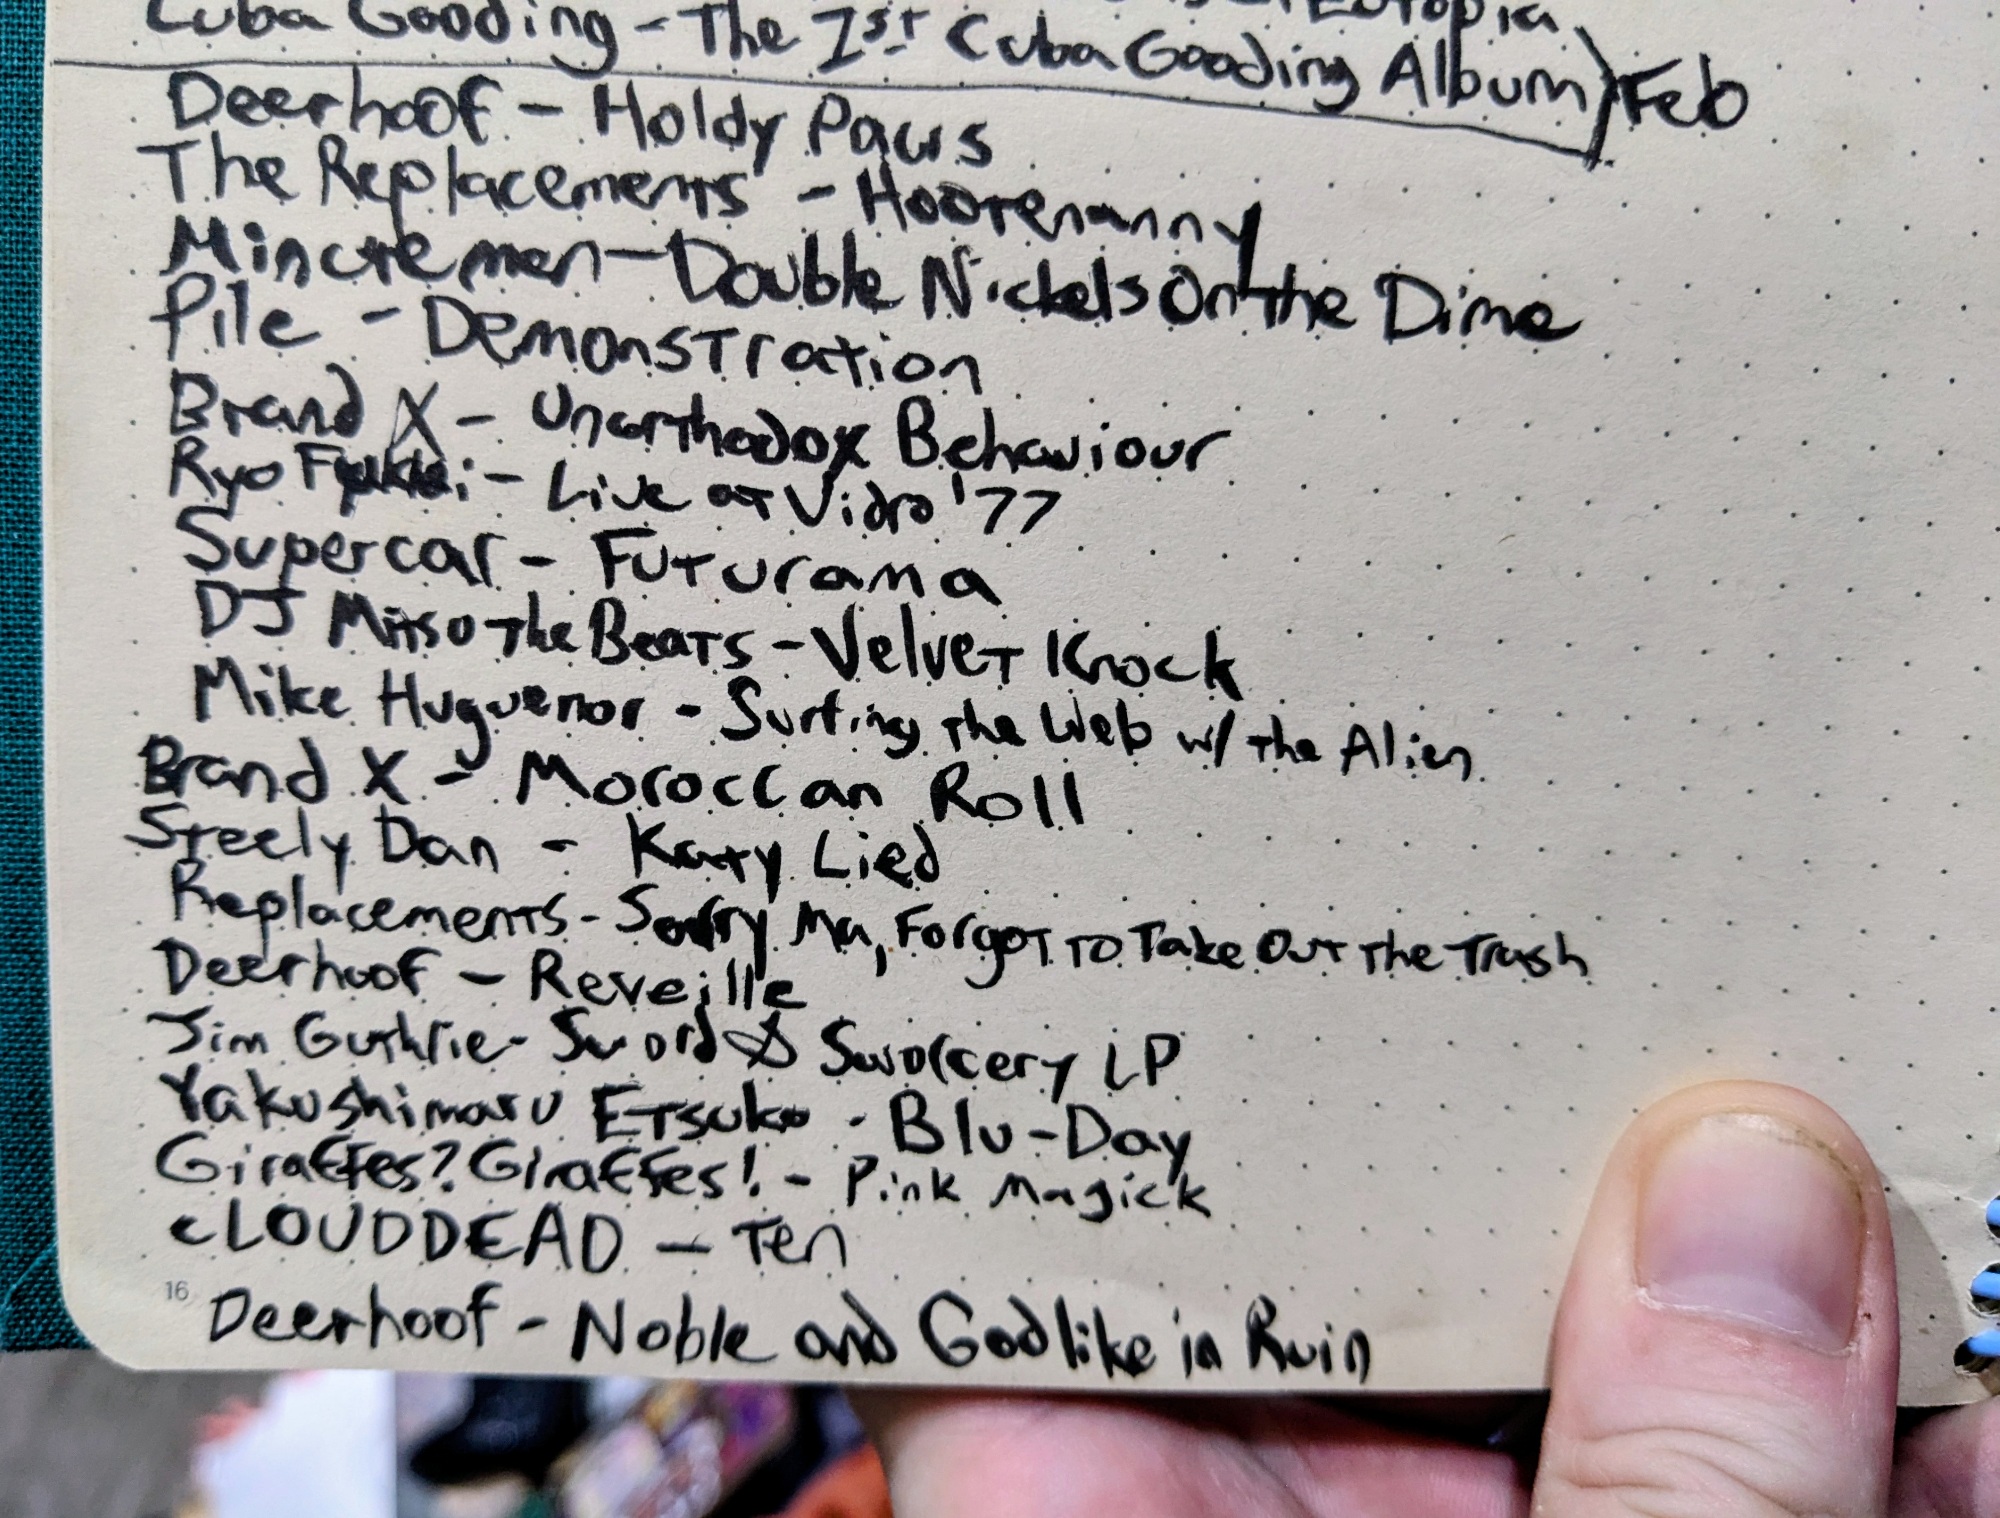 Eutopia
Cuba Gooding - The 1st Cuba Gooding Album) Feb
Deerhoof - Holdy Paws
The Replacements - Hootenanny
Minutemen - Double Nickels On the Dime
Pile - Demonstration
Brand X - Unorthodox Behaviour
Ryo Fukui - Live at Vidro '77
Supercar - Futurama
DJ Mitsu The Beats - Velvet Knock
Mike Huguenor - Surfing the Web w/ the Alien
Brand X - Moroccan Roll
Steely Dan - Katy Lied
Replacements - Sorry Ma, Forgot To Take Out The Trash
Deerhoof - Reveille
Jim Guthrie - Sword & Sworcery LP
Yakushimaru Etsuko - Blu-Day
Giraffes? Giraffes! - Pink Magick
cLOUDDEAD - Ten
16
Deerhoof - Noble and Godlike in Ruin